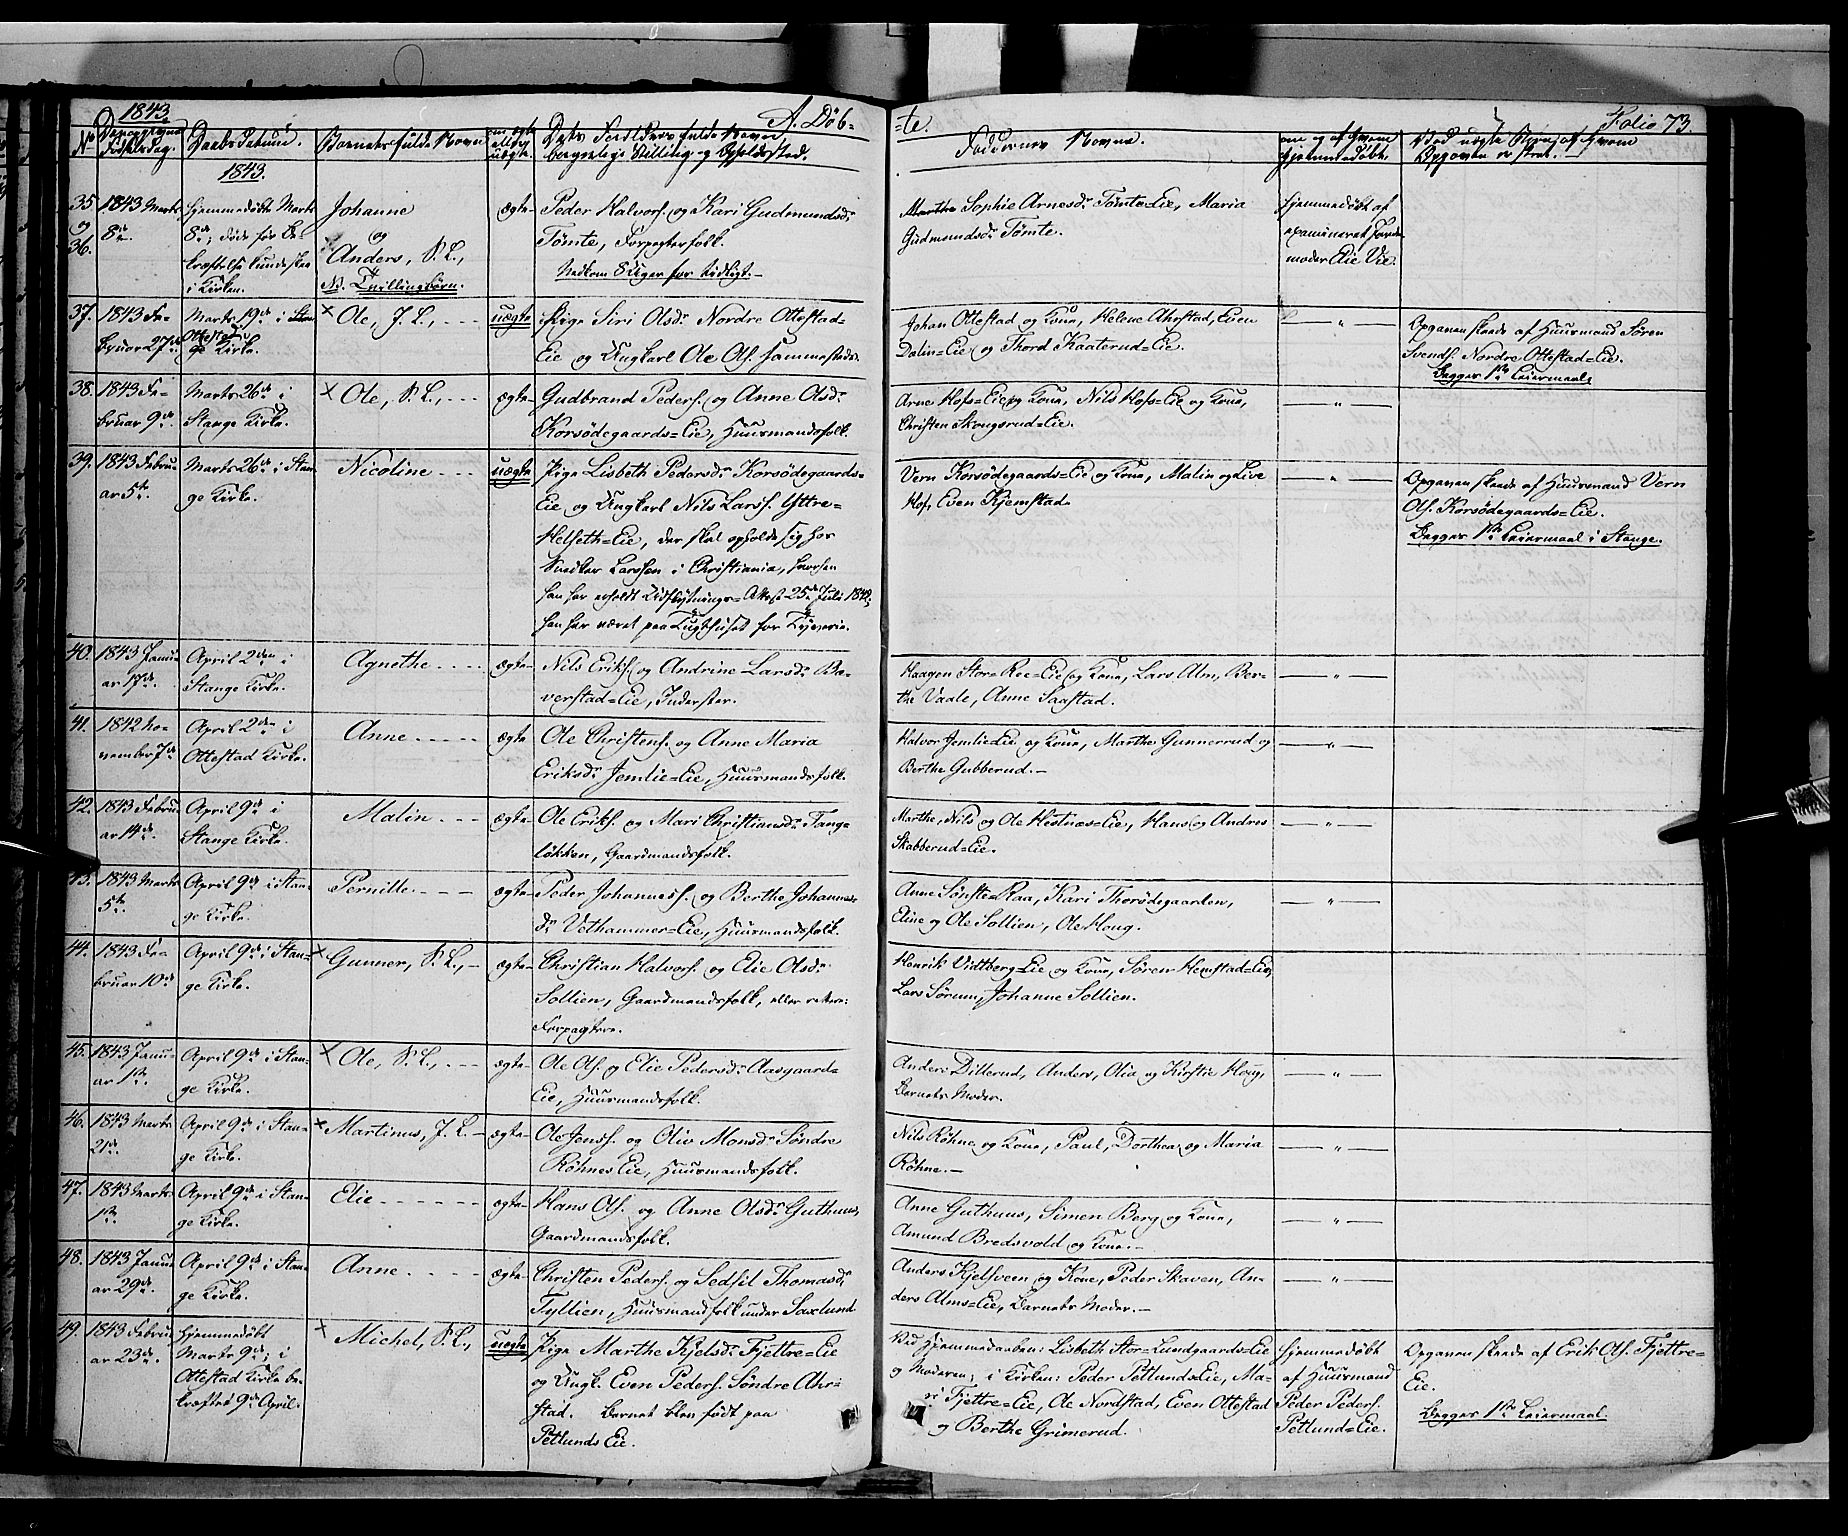 1843.
A. Døb-
-te.
Folio 73.
No
Daabsdatum.
Barnets fulde Navn
Faddernes Navne.
1843.
35 og 36.
1843 Marts 8de
Hjemmedøbte Marts
8de; døde før Be-
kræftelse kunde skee
i Kirken.
Johanne
og
Anders, P. L.,
NB. Tvillingbørn.
ægte
Peder Halvors. og Kari Gudmundsdr
Tømte, Forpagterfolk.
Nedkom 8 Uger for tidligt.-
Marthe Sophie Arnesdr Tømte=Eie, Maria
Gudmundsdr Tømte.
Hjemmedøbt af
examineret Jorde-
moder Elie Vie.
37.
1843 Fe-
bruar 27de
Marts 19de i Stan
Ottestad
ge Kirke.
× Ole, J. L., - - -
uægte
Pige Siri Olsdr Nordre Ottestad=
Eie og Ungkarl Ole Ols. sammesteds.
Johan Ottestad og Kone, Helene Ahrstad, Even
Dalin=Eie og Thord Kaaterud=Eie.
— " —
Opgaven skeede af Huusmand Søren
Svends. Nordre Ottestad=Eie.
Begges 1ste Leiermaal.
38.
1843 Fe-
bruar 9de
Marts 26de i
Stange Kirke.
× Ole, P. L., - - -
ægte
Gudbrand Peders. og Anne Olsdr
Korsødegaards=Eie, Huusmandsfolk.
Arne Hofs=Eie og Kone, Nils Hofs=Eie og Kone,
Christen Skongsrud=Eie.
— " —
39.
1843 Febru-
ar 5te
Marts 26de i Stan-
ge Kirke.
Nicoline - - -
uægte
Pige Lisbeth Pedersdr Korsødegaards-
Eie og Ungkarl Nils Larss. Yttre=
Helseth=Eie, der skal opholde sig hos
Snedker Larssen i Christiania, hvorhen
han har erholdt Udflytnings=Attest 25de Juli 1842,
han har været paa Tugthuset for Tyverie.
Vern Korsødegaards=Eie og Kone, Malin og Live
Hof, Even Kjemstad.
— " —
Opgaven skeede af Huusmand Vern
Ols. Korsødegaards=Eie.
Begges 1ste Leiermaal i Stange.
40.
1843 Janu-
ar 17de
April 2den i
Stange Kirke.
Agnethe - - - -
ægte
Nils Eriks. og Andrine Larsdr Be-
verstad=Eie, Inderster.
Haagen Stor=Ree=Eie og Kone, Lars Alm, Ber-
the Vaale, Anne Saastad.
— " —
41.
1842 No-
vember 7de
April 2den i
Ottestad Kirke.
Anne - - - - -
ægte
Ole Christens. og Anne Maria
Eriksdr Jemlie=Eie, Huusmandsfolk.
Halvor JemlieEie og Kone, Marthe Gunnerud og
Berthe Gubberud.-
— " —
42.
1843 Febru-
ar 14de
April 9de i
Stange Kirke.
Malin - - -
ægte
Ole Eriks. og Mari Christiansdr Tang-
løkken, Gaardmandsfolk.
Marthe, Nils og Ole Hestnæs=Eie, Hans og Andres
Skabberud=Eie.
— " —
43.
1843 Marts
5te
April 9de i Stan-
ge Kirke.
Pernille - - - -
ægte
Peder Johanness. og Berthe Johannes-
dr Vethammer=Eie, Huusmandsfolk.
Anne Sønste=Raa, Kari Thorsødegaarden,
Eline og Ole Sollien, Ole Houg.
— " —
44.
1843 Fe-
bruar 10de
April 9de i Stan-
ge Kirke.
× Gunner, P. L., -
ægte
Christian Halvors. og Elie Olsdr
Sollien, Gaardmandsfolk, eller rettere:
Forpagtere.
Henrik Vidtberg=Eie og Kone, Søren Hemstad=Eie,
Lars Sørum, Johanne Sollien.
45.
1843 Janu-
ar 1ste
April 9de i Stan-
ge Kirke.
× Ole, P. L., - - -
ægte
Ole Ols. og Elie Pedersdr Aasgaard-
Eie, Huusmandsfolk.
Anders Ditterud, Anders, Olia og Kirstie Houg,
Barnets Moder.
— " —
46.
1843 Marts
21de
April 9de i Stan-
ge Kirke.
× Martinus, J. L. -
ægte
Ole Jenss. og Oliv Monsdr Søndre
RøhnesEie, Huusmandsfolk.
Nils Røhne og Kone, Paul, Dorthea og Maria
Røhne.-
— " —
47.
1843 Marts
1ste
April 9de i Stan-
ge Kirke.
Elie - - - - - -
ægte
Hans Ols. og Anne Olsdr Guthuus,
Gaardmandsfolk.
Anne Guthuus, Simen Berg og Kone,
Amund Bredsvold og Kone.-
— " —
48.
1843 Janu-
ar 29de
April 9de i Stan-
ge Kirke.
Anne - - - -
ægte
Christen Peders. og Sedsil Thomasdr
Tyllien, Huusmandsfolk under Saxlund
Anders Kjelsveen og Kone, Peder Skaven, An-
ders Alms=Eie, Barnets Moder.-
— " —
49.
1843 Febru-
ar 23de
Hjemmedøbt
Marts 9de; i
Ottestad Kirke be-
kræftet 9de April.
× Michel, P. L.,
uægte
Pige Marthe Kjelsdr Fjettre=Eie
og Ungk. Even Peders. Søndre Ahr-
stad. Barnet blev født paa
Petlunds Eie.
Ved Hjemmedaaben: Lisbeth Stor=Lundgaards=Eie
og Moderen; i Kirken: Peder PetlundsEie, Ma-
ri Fjettre=Eie, Ole Nordstad, Even Ottestad
og Berthe Grimerud.
Hjemmedøbt
af Huusmand
Peder Peders.
Petlund=Eie.
Opgaven skeede af Erik Ols. Fjettre=
Eie.
Begges 1ste Leiermaal.